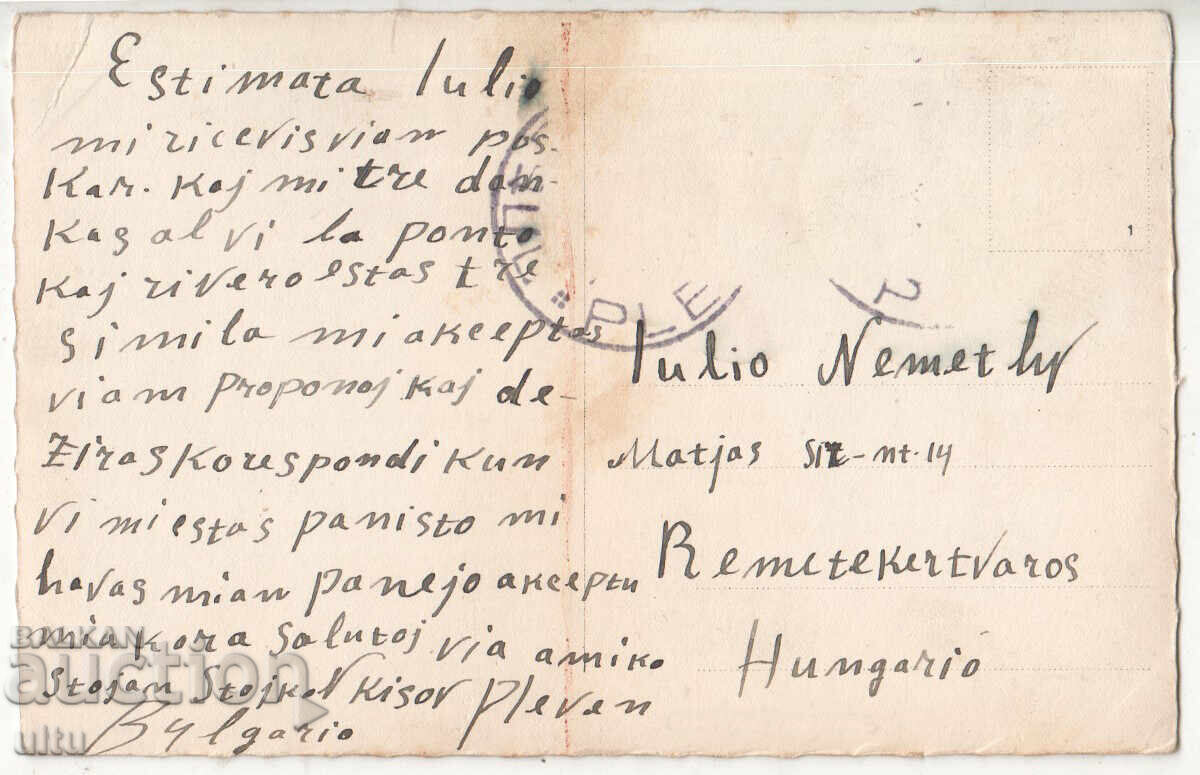 Estimata Iulio
mi ricevis vian pos.
Kar. Kaj mi tre dan-
Kas al vi la ponto
Kaj rivero estas tre
simila mi akceptas
viam proponoj kaj de-
ziras korespondi kun
vi mi estas panisto mi
havas mian panejo akceptu
mia kora salutoj via amiko
Stojan Stojkov Kisov Pleven
Bylgario
Iulio Nemethy
Matjas
nt. 14
Remetekertvaros
Hungario
PLE
1
BALKAN
auction
ultu